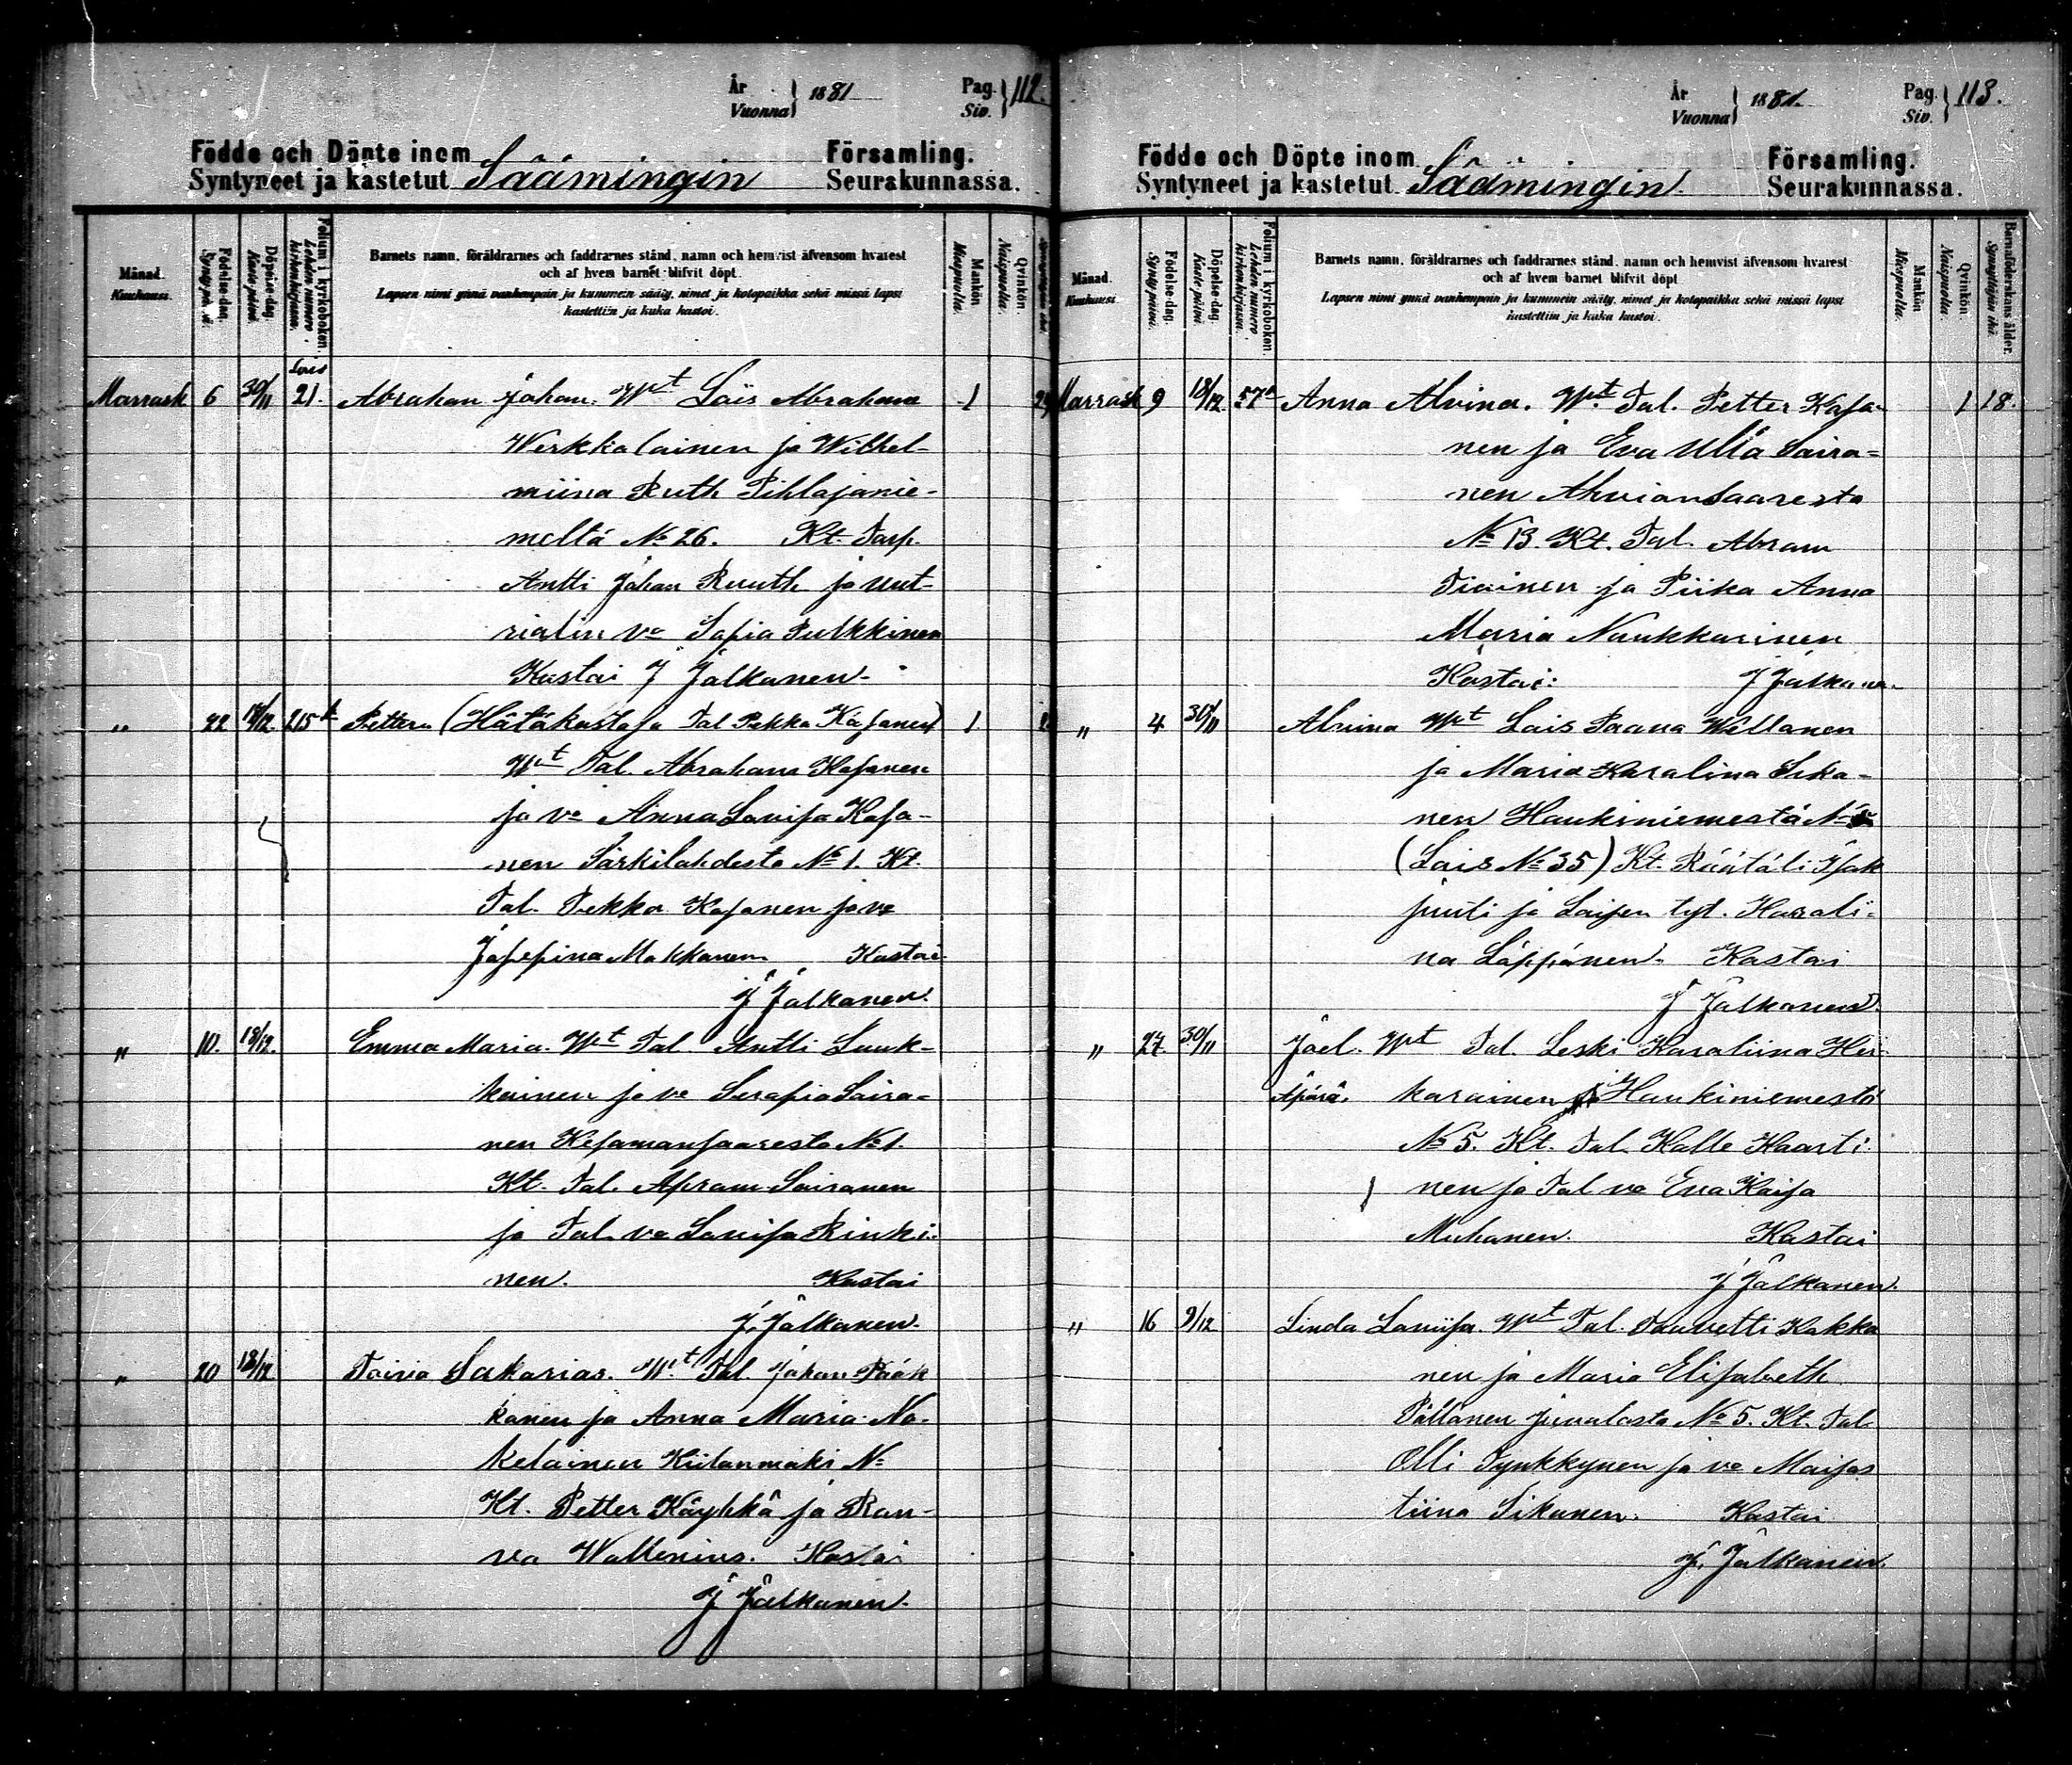 År
Vuonna } 1881 Pag. Siv. } 112.
Födde och Döpte inom Församling.
Syntyneet ja kastetut Säämingin Seurakunnassa.
Månad. Kuukausi.
Födelse-dag. Synty päivä.
Döpelse-dag. Kaste päivä.
Folium i kyrkoboken. Lehden numero kirkonkirjassa.
Barnets namn, föräldrarnes och faddrarnes stånd, namn och hemvist äfvensom hvarest
och af hvem barnet blifvit döpt.
Lapsen nimi ynnä vanhempain ja kummein sääty, nimet ja kotopaikka sekä missä lapsi
kastettiin ja kuka kastoi.
Mankön. Miespuolia.
Qvinkön. Naispuolia.
Lais
Marrask 6 30/11 21. Abraham Johan. Wt Lais Abraham 1
Werkkalainen ja Wilhel-
miina Ruth Pihlajanie-
meltä No 26. Kt. Tarp.
Antti Johan Ruuth ja
vo Sofia Pulkkinen
Kastoi J Jalkanen.
" 22 18/12 215 Petter. (Hätäkastaja Tal Pekka Kosanen) 1
Wt Tal. Abraham Kosanen
ja vo Anna Lovisa Kosa-
nen Särkilahdesta No 1. Kt.
Tal. Pekka Kosanen ja vo
Josepina Makkonen. Kastoi
J Jalkanen.
" 10. 18/12. Emma Maria. Wt Tal. Antti Lauk-
kainen ja vo Serafia Saira-
nen No 1.
Kt. Tal. Apram Sairanen
ja Tal. vo Lovisa Rinki-
nen. Kastoi
J. Jalkanen.
" 20 18/12 Toivo Sakarias. Wt. Tal. Johan Pääk
konen ja Anna Maria No-
kelainen Kiilanmäki No
Kt. Petter Käyhkö ja
Wallenius. Kastoi
J Jalkanen.
År
Vuonna } 1881. Pag. Siv. } 113.
Födde och Döpte inom Församling.
Syntyneet ja kastetut Säämingin Seurakunnassa.
Månad. Kuukausi.
Födelse-dag. Synty päivä.
Döpelse-dag. Kaste päivä.
Folium i kyrkoboken. Lehden numero kirkonkirjassa.
Barnets namn, föräldrarnes och faddrarnes stånd, namn och hemvist äfvensom hvarest
och af hvem barnet blifvit döpt
Lapsen nimi ynnä vanhempain ja kummein sääty, nimet ja kotopaikka sekä missä lapsi
kastettiin ja kuka kastoi.
Mankön Miespuolia.
Qvinkön. Naispuolia.
Barnaföderskans ålder. Synnyttäjän ikä.
Marrask 9 18/12 57 Anna Alvina. Wt. Tal. Petter Kosa-
nen ja Eva Ulla Saira=
nen Ahvionsaaresta
No 13. Kt. Tal. Abram
Tiainen ja Piika Anna
Maria Naukkarinen
Kastoi: J Jalkanen. 1 18.
" 4 30/11 Alvina Wt Lais Paava Willanen
ja Maria Karolina Siika-
nen Haukiniemestä No
(Lais No 35) Kt. Räätäli Isak
Juuti ja Loisen tyt. Karoli-
na Läppänen. Kastoi
J Jalkanen.
" 27 30/11 Joel. Wt Tal. Leski Karoliina Hei-
Äpärä. karainen Haukiniemestä
No 5. Kt. Tal. Kalle Kaarti-
nen ja Tal vo Eva Kaisa
Muhonen. Kastoi
J Jalkanen.
" 16 9/12 Linda Loviisa. Wt Tal. Taavetti Kokko
nen ja Maria Elisabeth
Pöllänen Juvolasta No 5. Kt. Tal
Olli Tynkkynen ja vo Maijas
tiina Sikanen. Kastoi
J. Jalkanen.